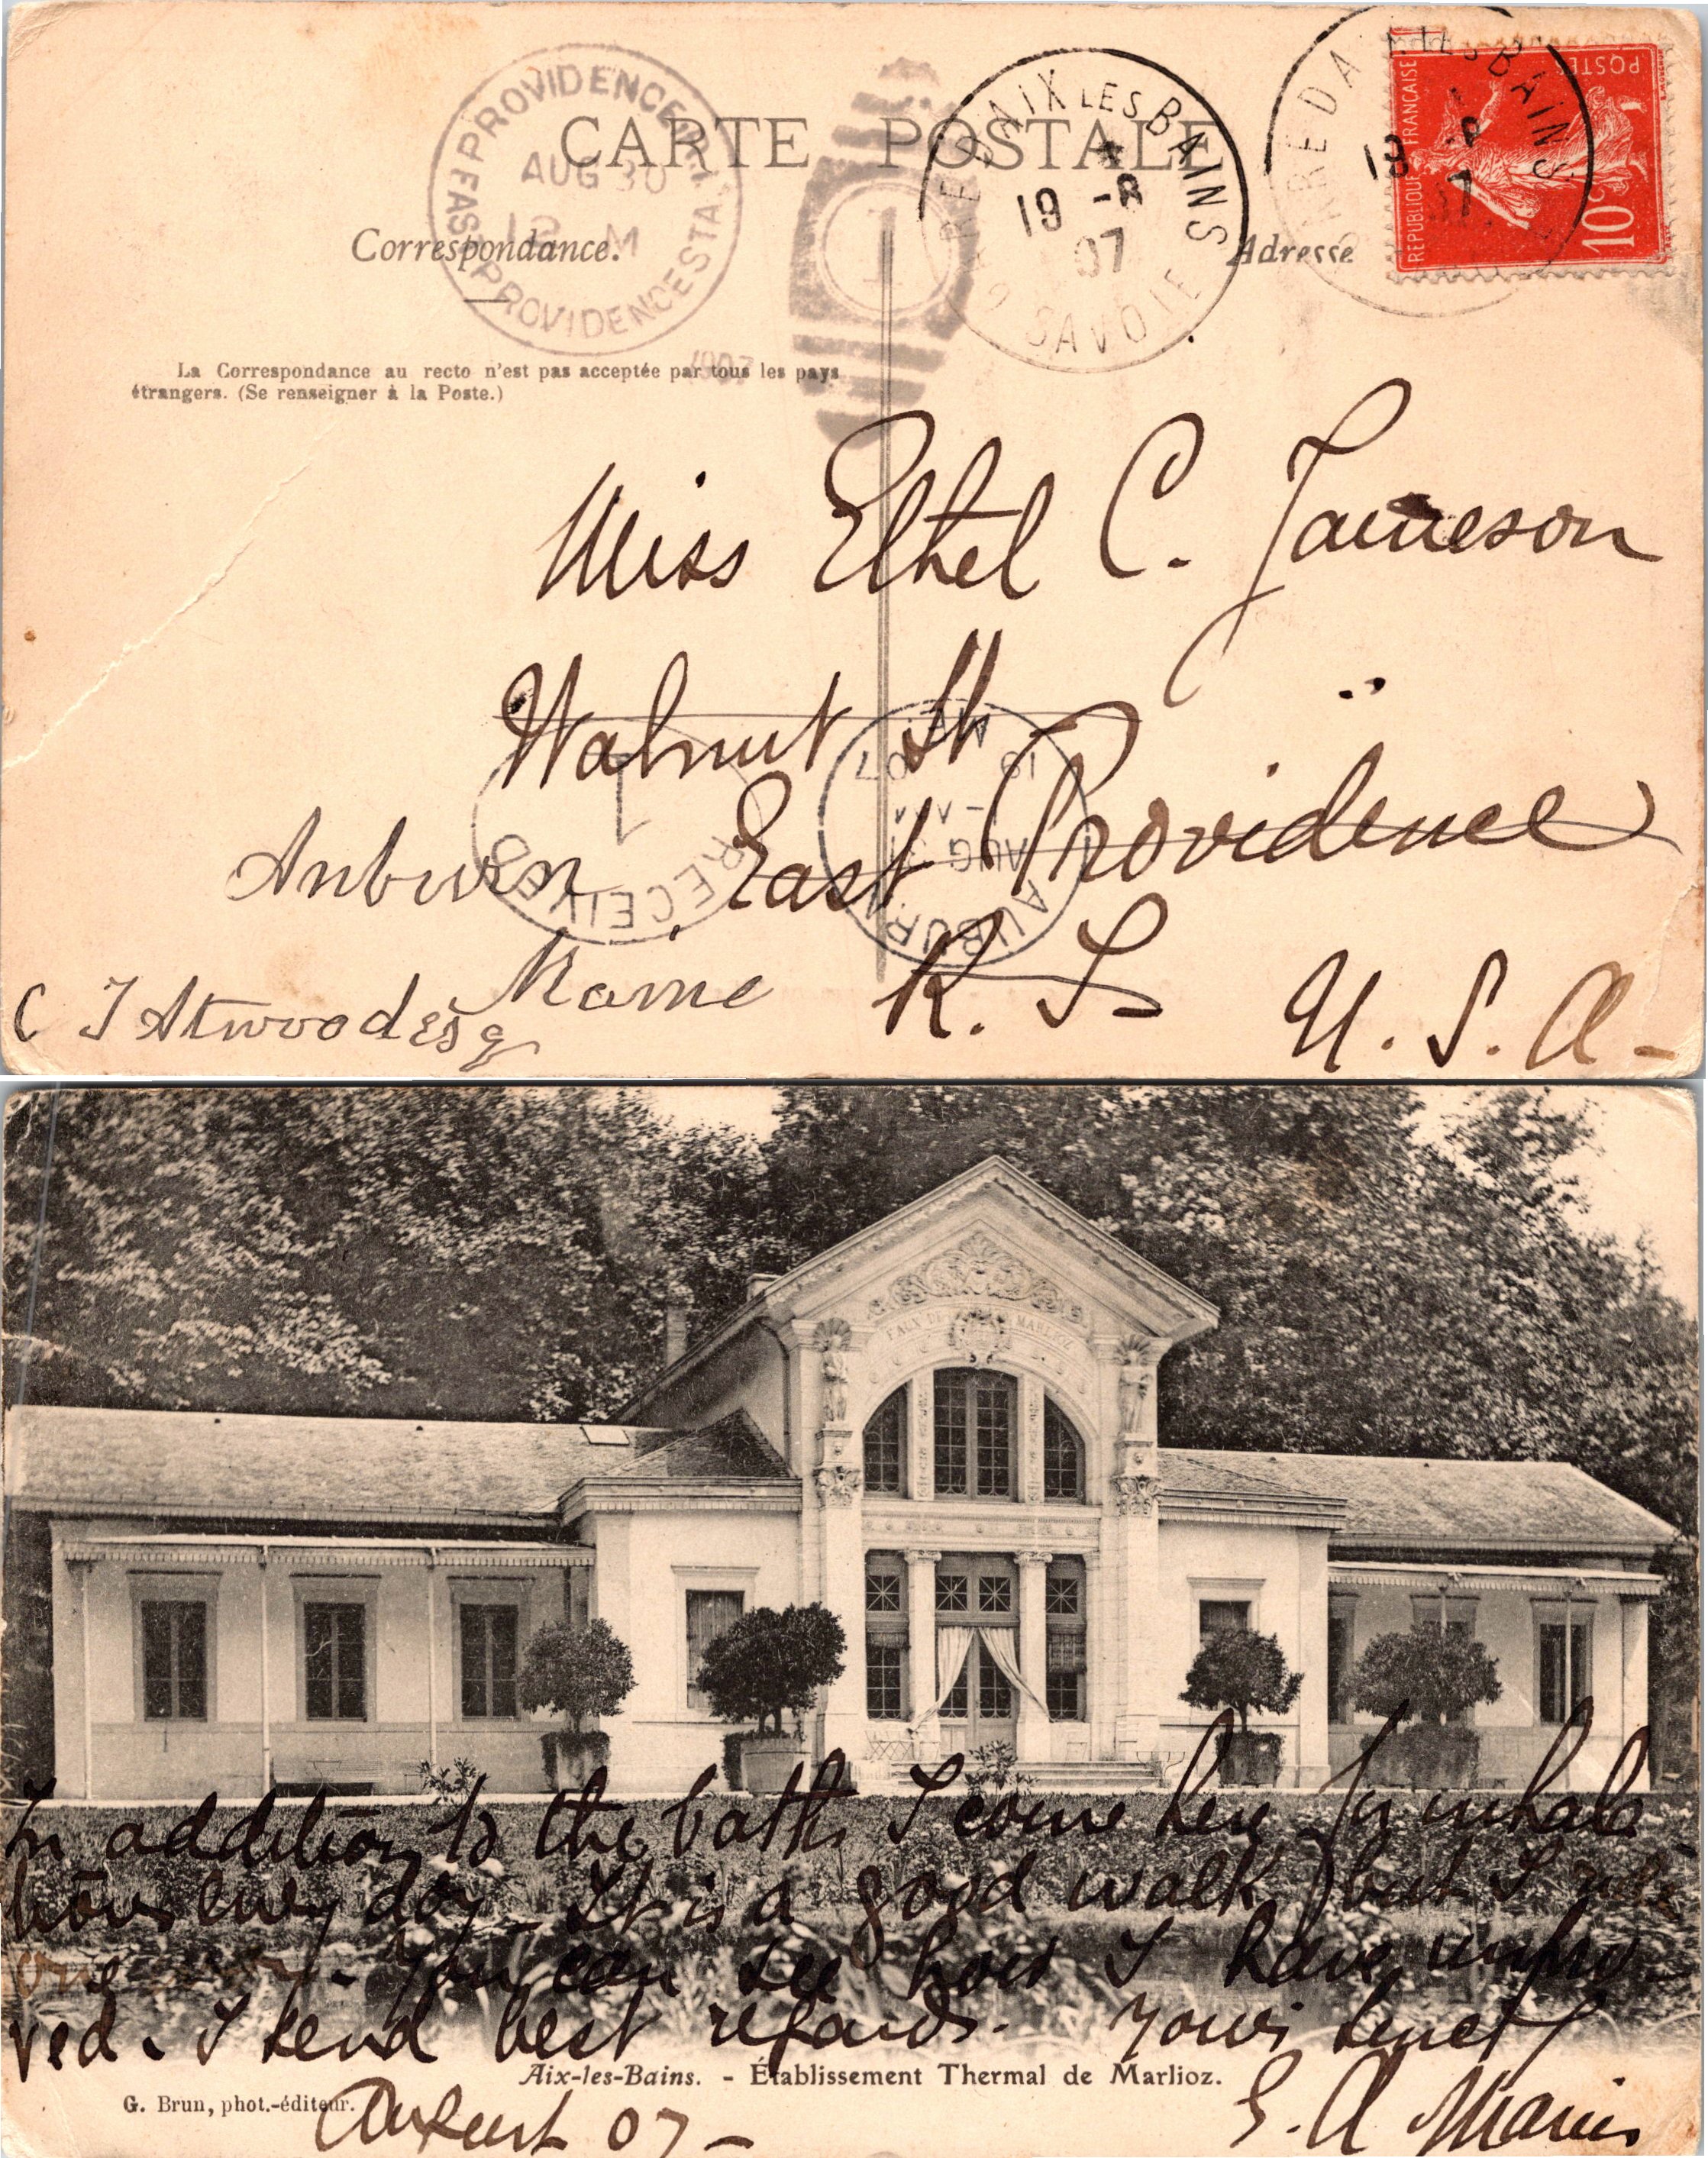 CARTE POSTALE
EAST PROVIDENCE STA.
PROVIDENCE, R.I.
AUG 30
12 M
1907
1
GARE D'AIX LES BAINS
19 -8
07
SAVOIE
GARE D'AIX LES BAINS
19 -8
07
REPUBLIQUE FRANÇAISE
POSTES
10c
Correspondance.
Adresse
La Correspondance au recto n'est pas acceptée par tous les pays
étrangers. (Se renseigner à la Poste.)
Miss Ethel C. Jameson
Walnut St
East Providence
R. I. U. S. A-
Auburn
Maine
C J Atwood esq
1
RECEIVED
AUBURN
AUG 31
1907
ME.
EAUX DE MARLIOZ
In addition to the baths I come here for inhala
tions every day - It is a good walk, but I ride
one way - You can see how I have impro-
ved. I send best regards. Yours sincety
Aix-les-Bains. - Établissement Thermal de Marlioz.
G. Brun, phot.-éditeur.
August 07 -